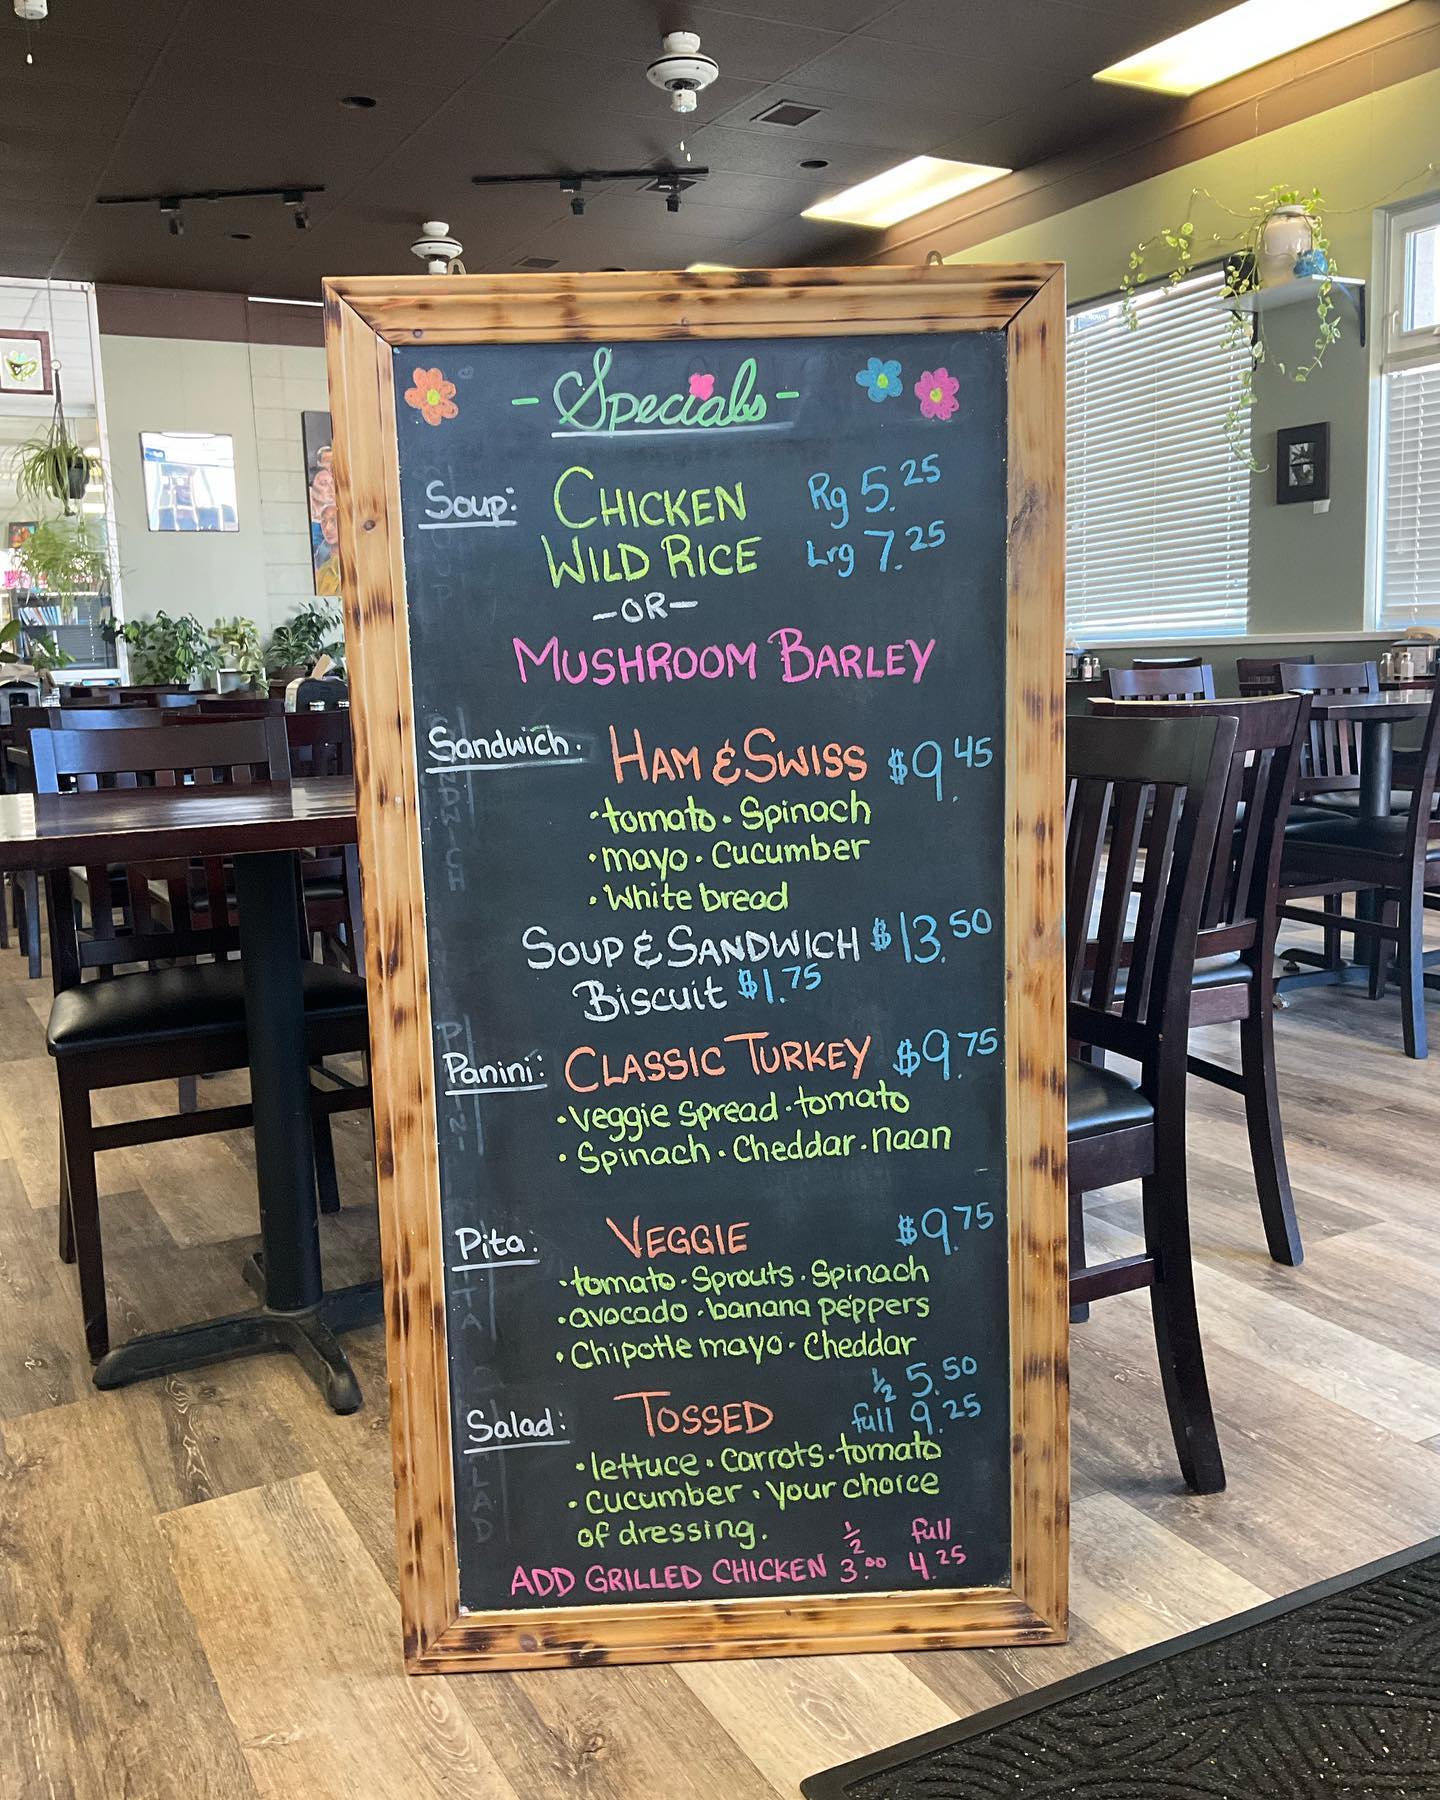 - Specials -
Soup: CHICKEN Rg 5.25
WILD RICE Lrg 7.25
-OR-
MUSHROOM BARLEY
Sandwich: HAM & SWISS $9.45
• tomato • Spinach
• mayo • Cucumber
• White bread
SOUP & SANDWICH $13.50
Biscuit $1.75
Panini: CLASSIC TURKEY $9.75
• veggie spread • tomato
• Spinach • Cheddar • naan
Pita: VEGGIE $9.75
• tomato • Sprouts • Spinach
• avocado • banana peppers
• Chipotle mayo • Cheddar
½ 5.50
Salad: TOSSED full 9.25
• lettuce • Carrots • tomato
• Cucumber • your choice
of dressing.
½ full
ADD GRILLED CHICKEN 3.00 4.25